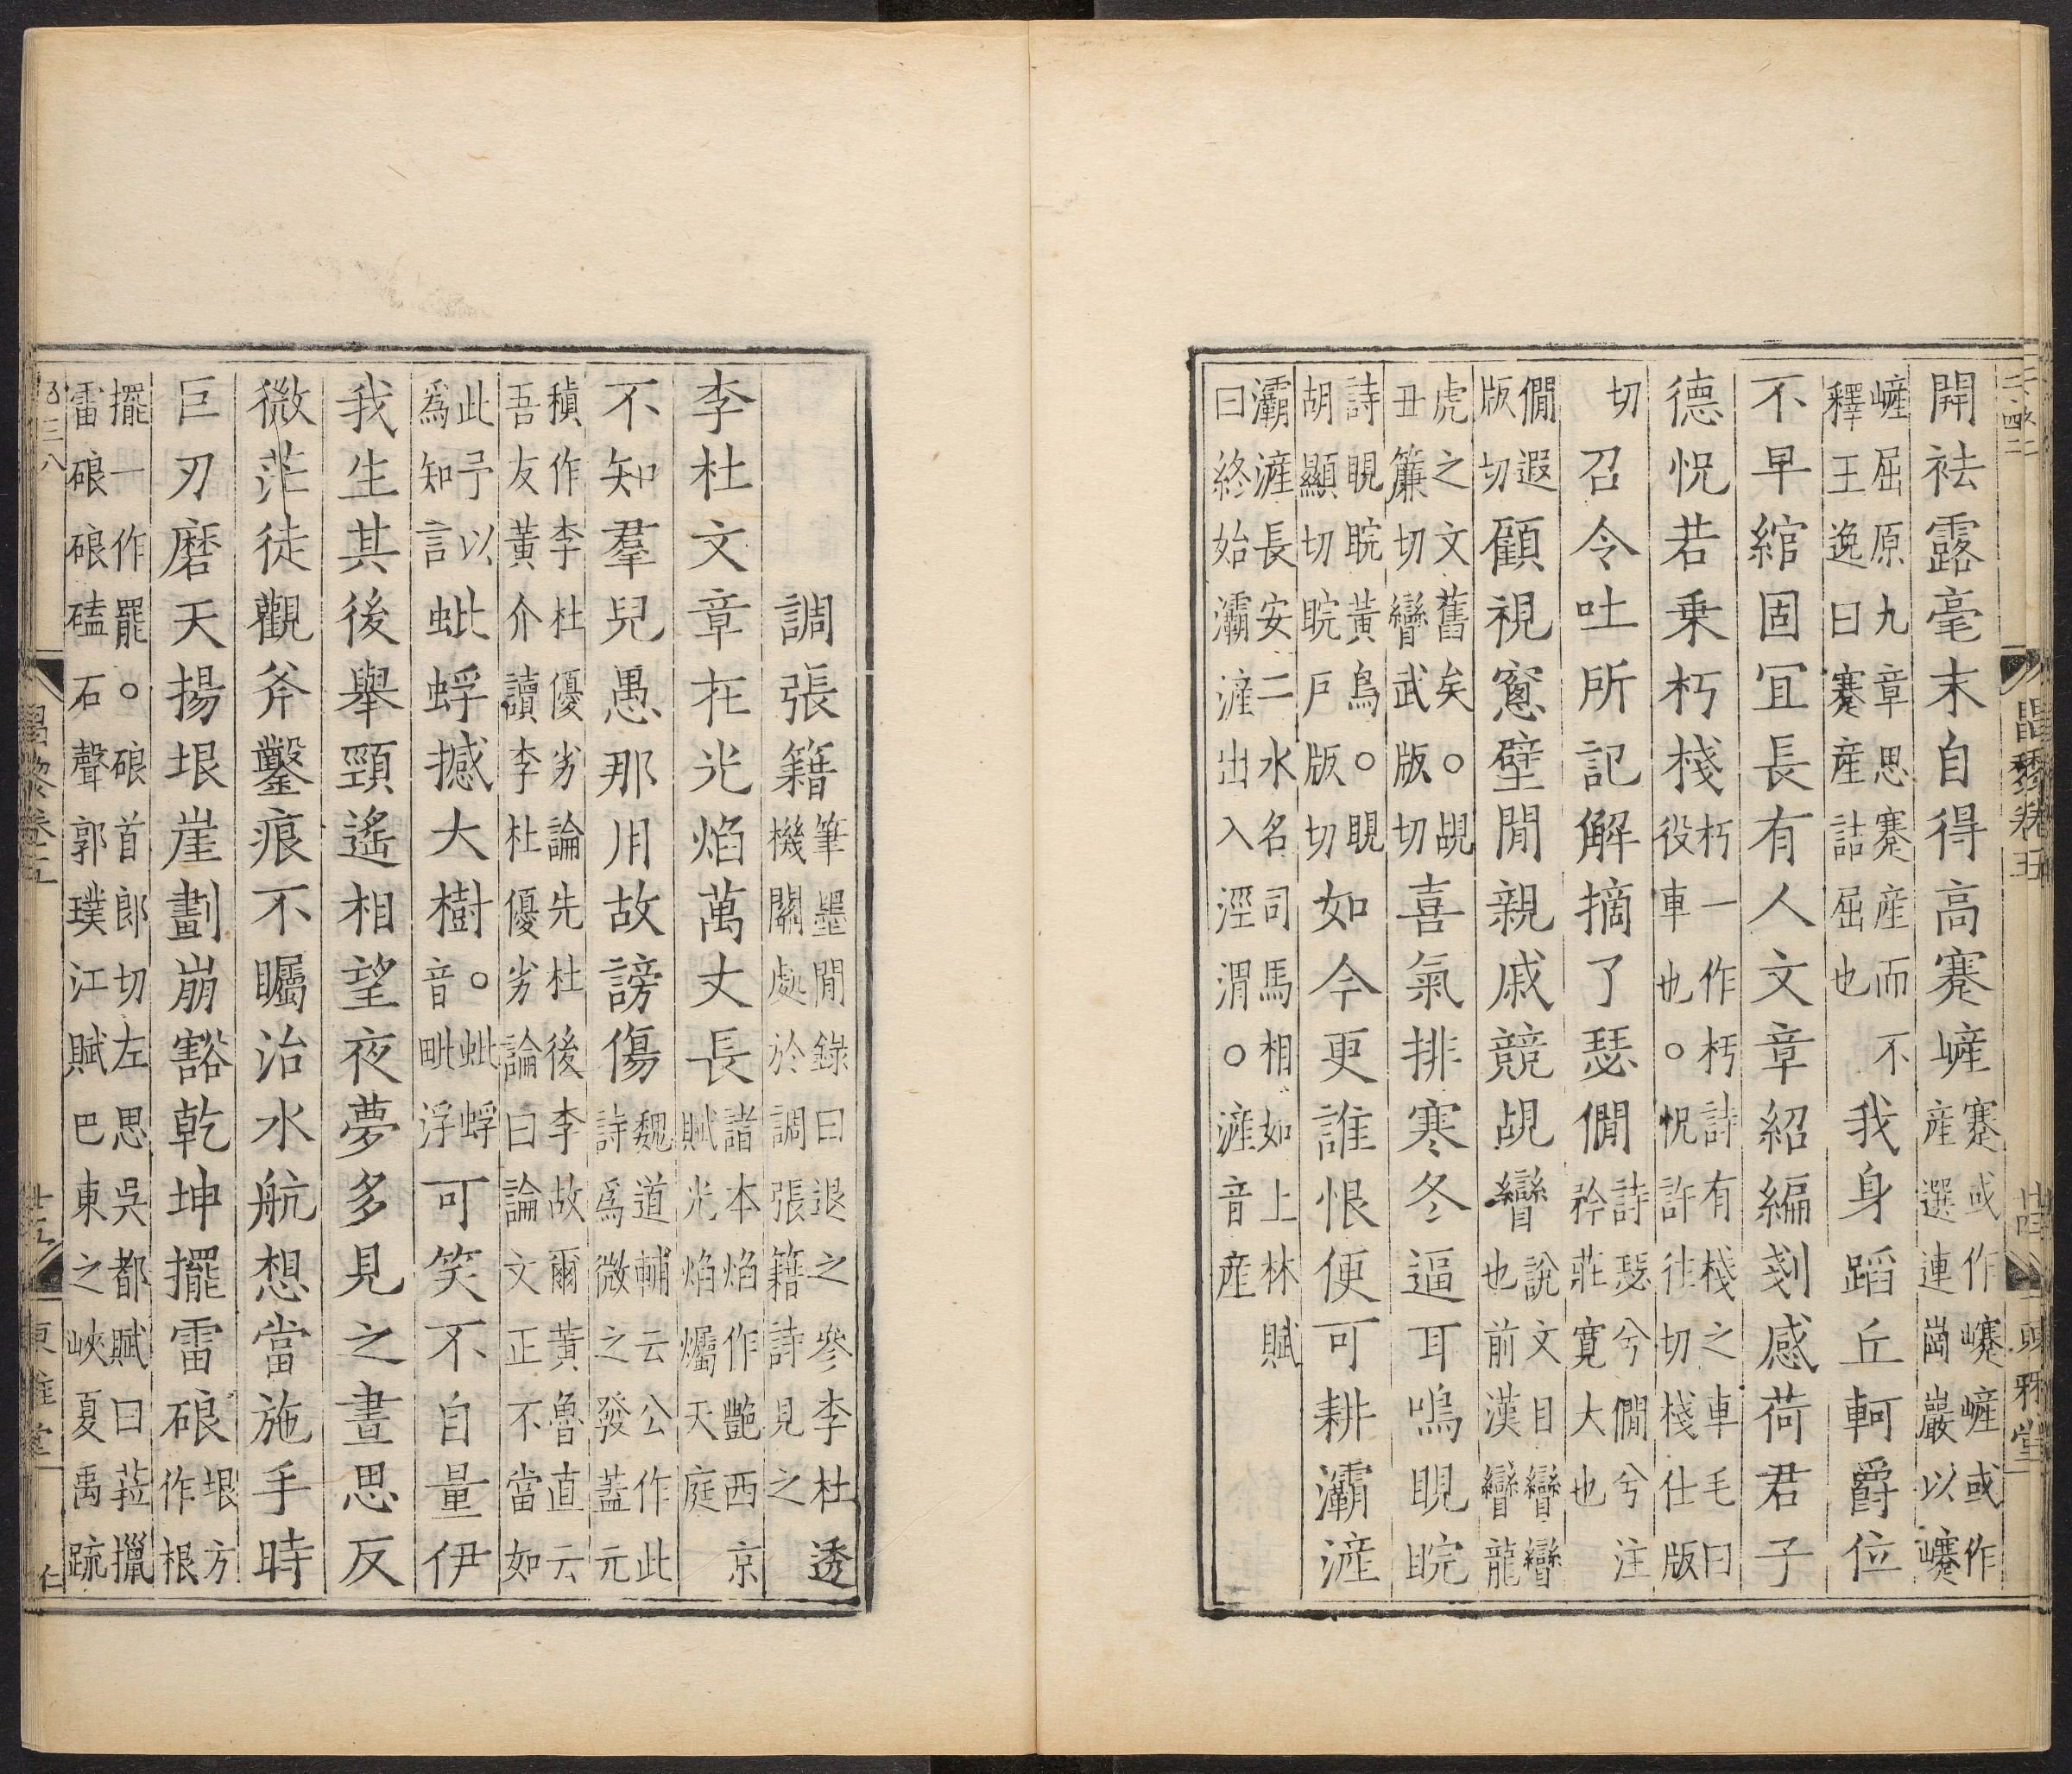 開袪露毫末自得高蹇嵼蹇或作㠾嵼或作産選連崗巖以㠾
嵼屈原九章思蹇産而不釋王逸曰蹇産詰屈也我身蹈丘軻爵位
不早綰固宜長有人文章紹編刻感荷君子
德怳若乗朽棧朽一作朽詩有棧之車毛曰役車也。怳許往切棧仕版
切召令吐所記解摘了瑟僩詩瑟兮僩兮注矜莊寛大也
僩遐版切顧視窻壁閒親戚競覘矕說文目矕矕也前漢矕龍
虎之文舊矣。覘丑簾切矕武版切喜氣排寒冬逼耳鳴睍睆
詩睍睆黃鳥。睍胡顯切睆戶版切如今更誰恨便可耕灞滻
灞滻長安二水名司馬相如上林賦曰終始灞滻出入涇渭。滻音産
調張籍筆墨閒錄曰退之參李杜透機關處於調張籍詩見之
李杜文章在光焰萬丈長諸本焰作艷西京賦光焰爥天庭
不知羣兒愚那用故謗傷魏道輔云公作此詩爲微之發蓋元
稹作李杜優劣論先杜後李故爾黃魯直云吾友黃介讀李杜優劣論曰論文正不當如
此予以爲知言蚍蜉撼大樹。蚍蜉音毗浮可笑不自量伊
我生其後舉頸遙相望夜夢多見之晝思反
微茫徒觀斧鑿痕不矚治水航想當施手時
巨刃磨天揚垠崖劃崩豁乾坤擺雷硠垠方作根
擺一作罷。硠首郎切左思吳都賦曰菈擸雷硠硠磕石聲郭璞江賦巴東之峽夏禹疏
昌黎卷五 廿五 東雅堂 仁